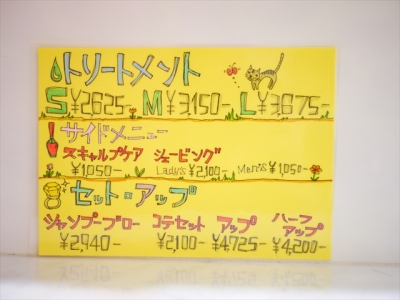 トリートメント
S ¥2625- M ¥3,150- L ¥3,675-
サイドメニュー
スキャルプケア シェービング
¥1,050- Lady's ¥2,100- Men's ¥1,050-
セット・アップ
シャンプーブロー コテセット アップ ハーフアップ
¥2,940- ¥2,100- ¥4,725- ¥4,200-